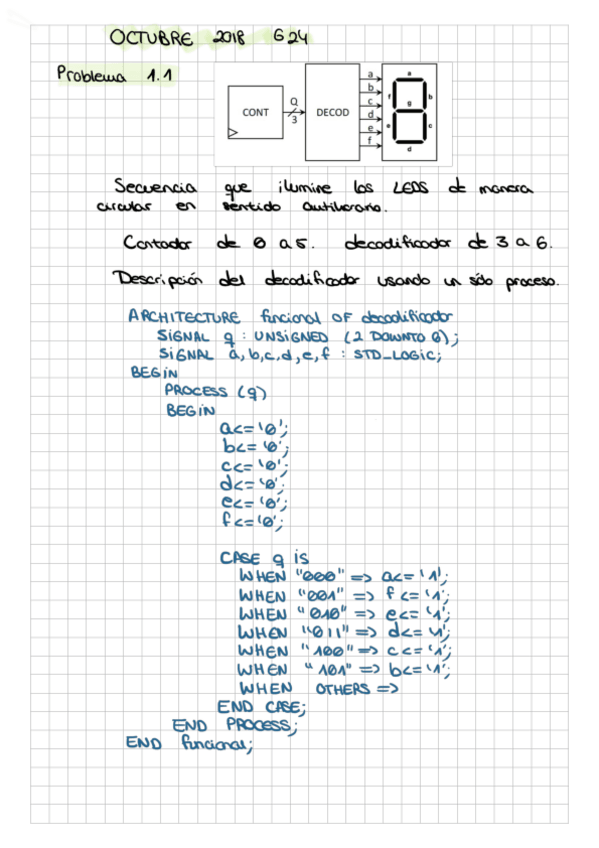 OCTUBRE 2018 G24
Problema 1.1
CONT
Q
3
DECOD
a
b
c
d
e
f
a
f
b
g
e
c
d
Secuencia que ilumine los LEDS de manera
circular en sentido antihorario.
Contador de 0 a 5. decodificador de 3 a 6.
Descripción del decodificador usando un sólo proceso.
ARCHITECTURE funcional OF decodificador
SIGNAL q : UNSIGNED (2 DOWNTO 0);
SIGNAL a,b,c,d,e,f : STD_LOGIC;
BEGIN
PROCESS (q)
BEGIN
a<='0';
b<='0';
c<='0';
d<='0';
e<='0';
f<='0';
CASE q IS
WHEN "000" => a<='1';
WHEN "001" => f<='1';
WHEN "010" => e<='1';
WHEN "011" => d<='1';
WHEN "100" => c<='1';
WHEN "101" => b<='1';
WHEN OTHERS =>
END CASE;
END PROCESS;
END funcional;